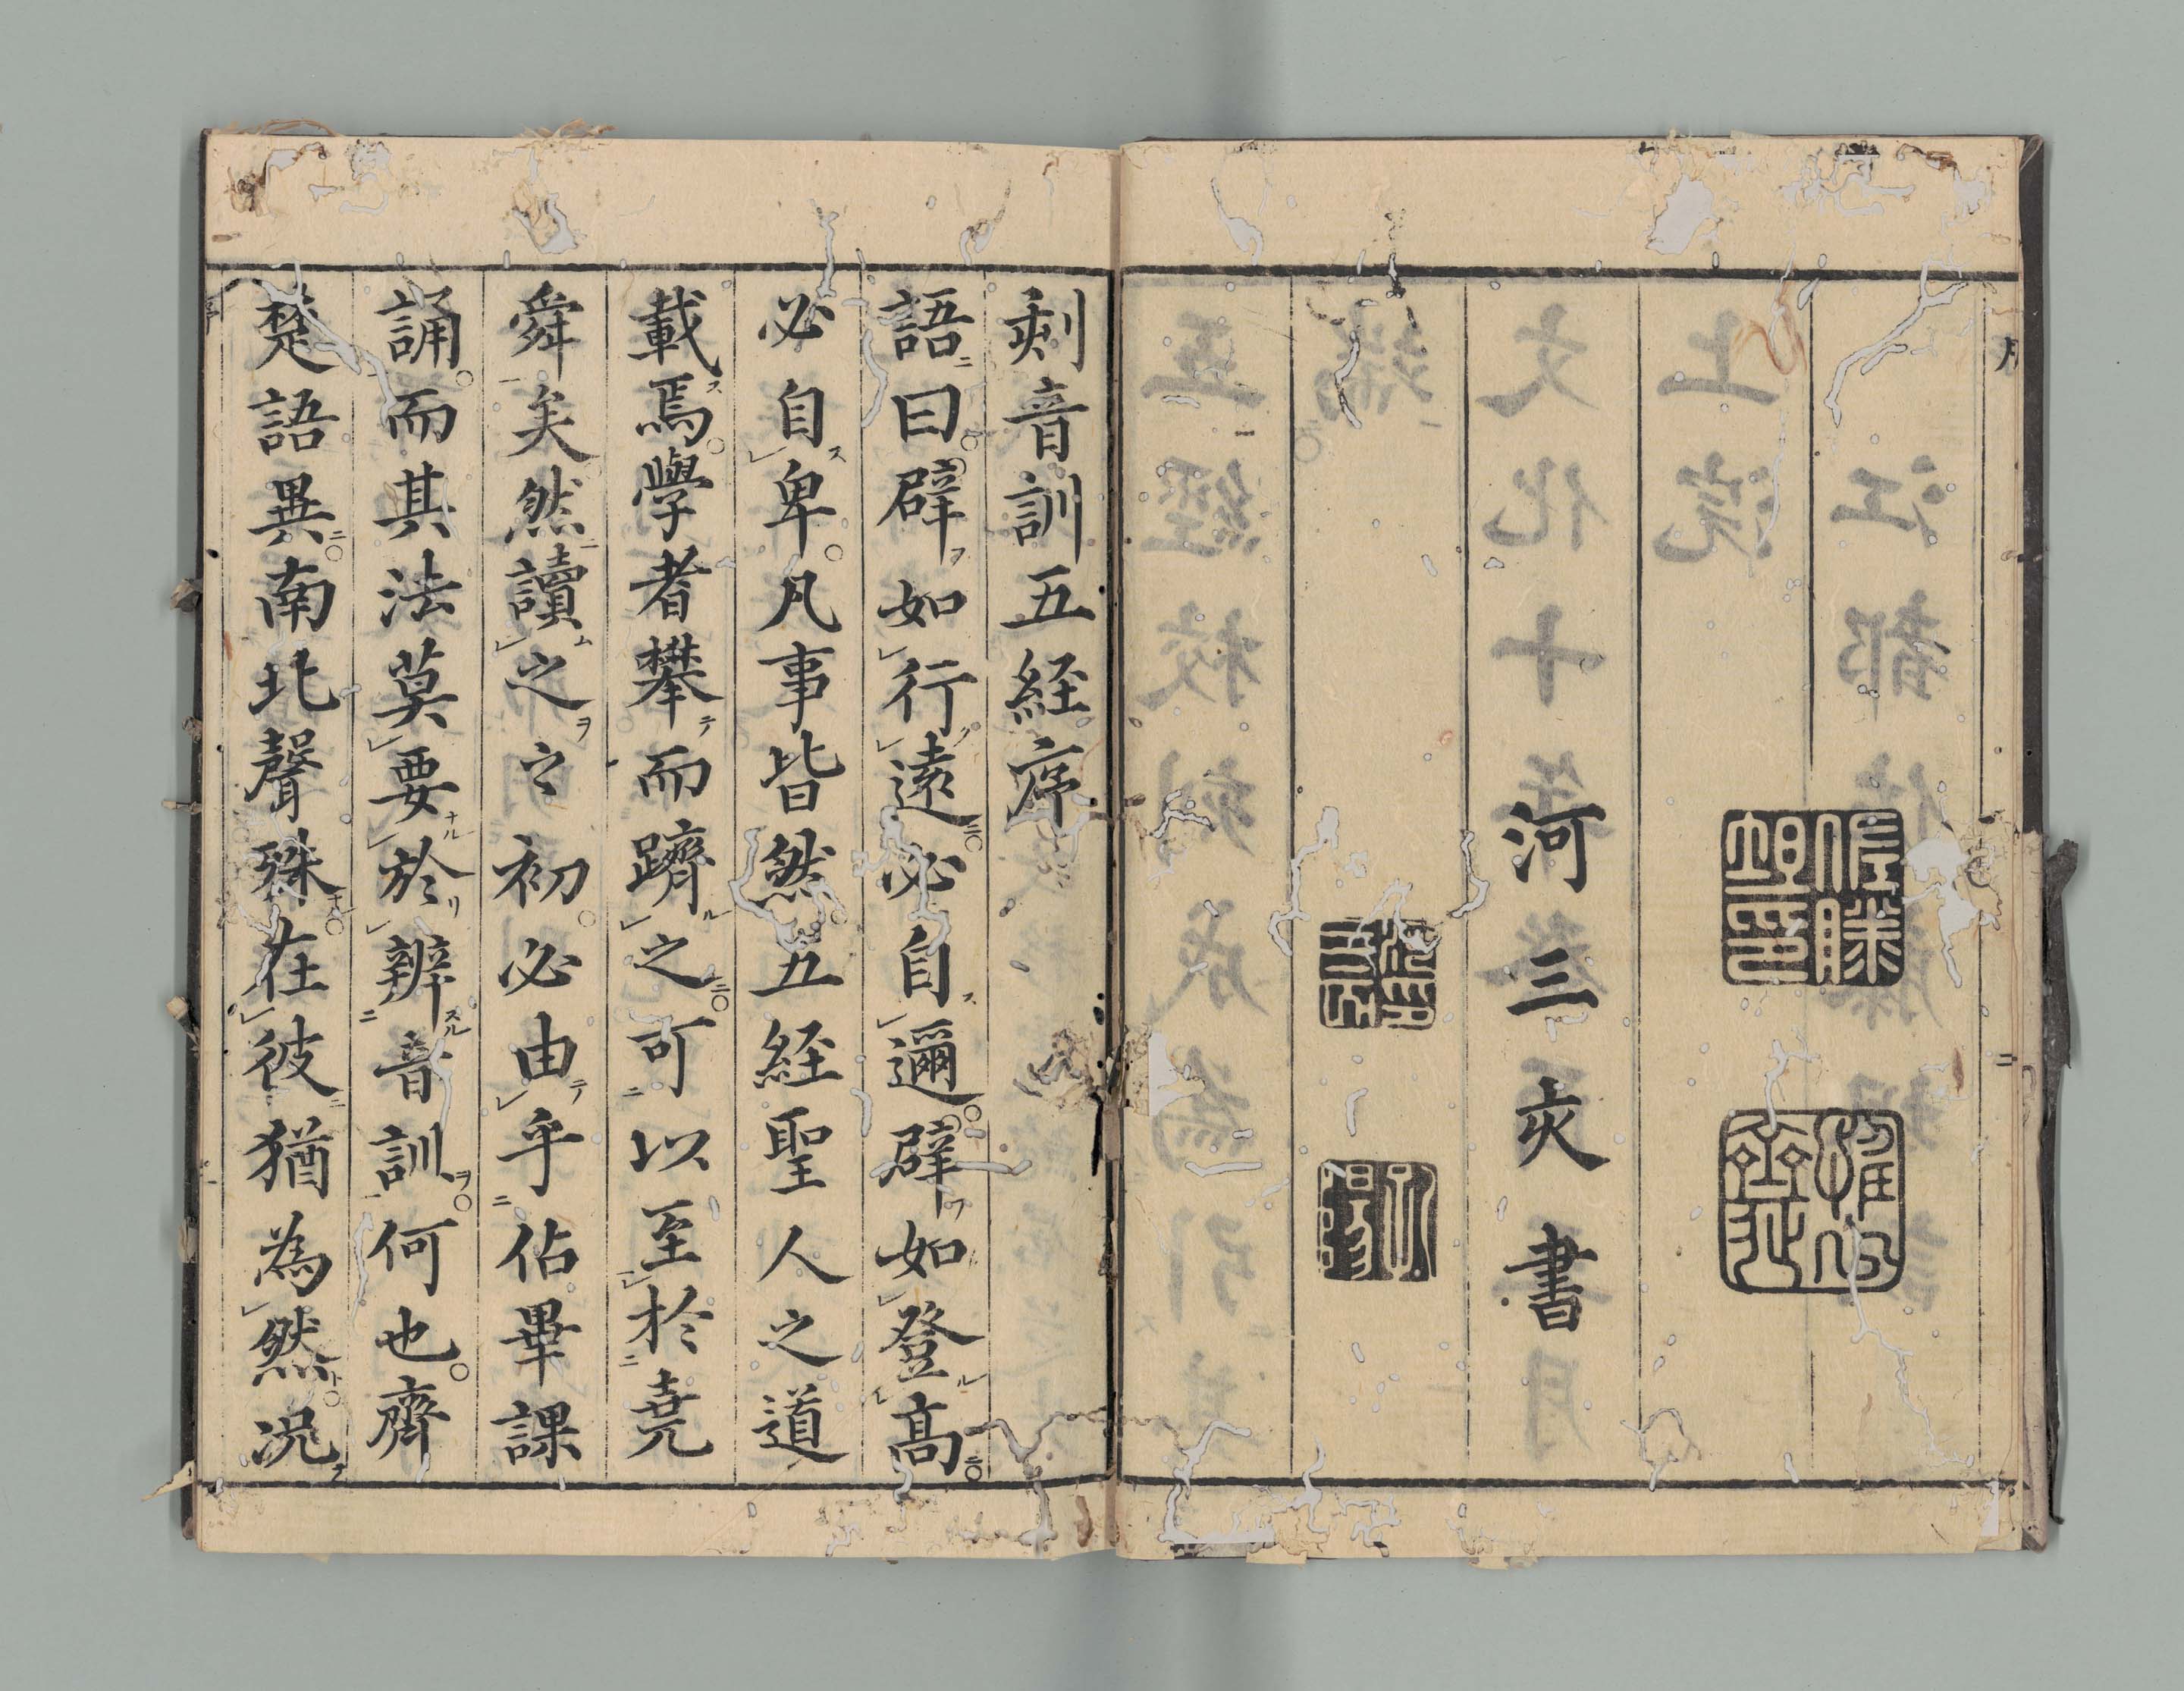 河三亥書
刻音訓五経序
語曰辟如行遠必自邇辟如登高
必自卑凡事皆然五経聖人之道
載焉學者攀而躋之可以至於堯
舜矣然讀之之初必由乎佔畢課
誦而其法莫要於辨音訓何也齊
楚語異南北聲殊在彼猶為然况